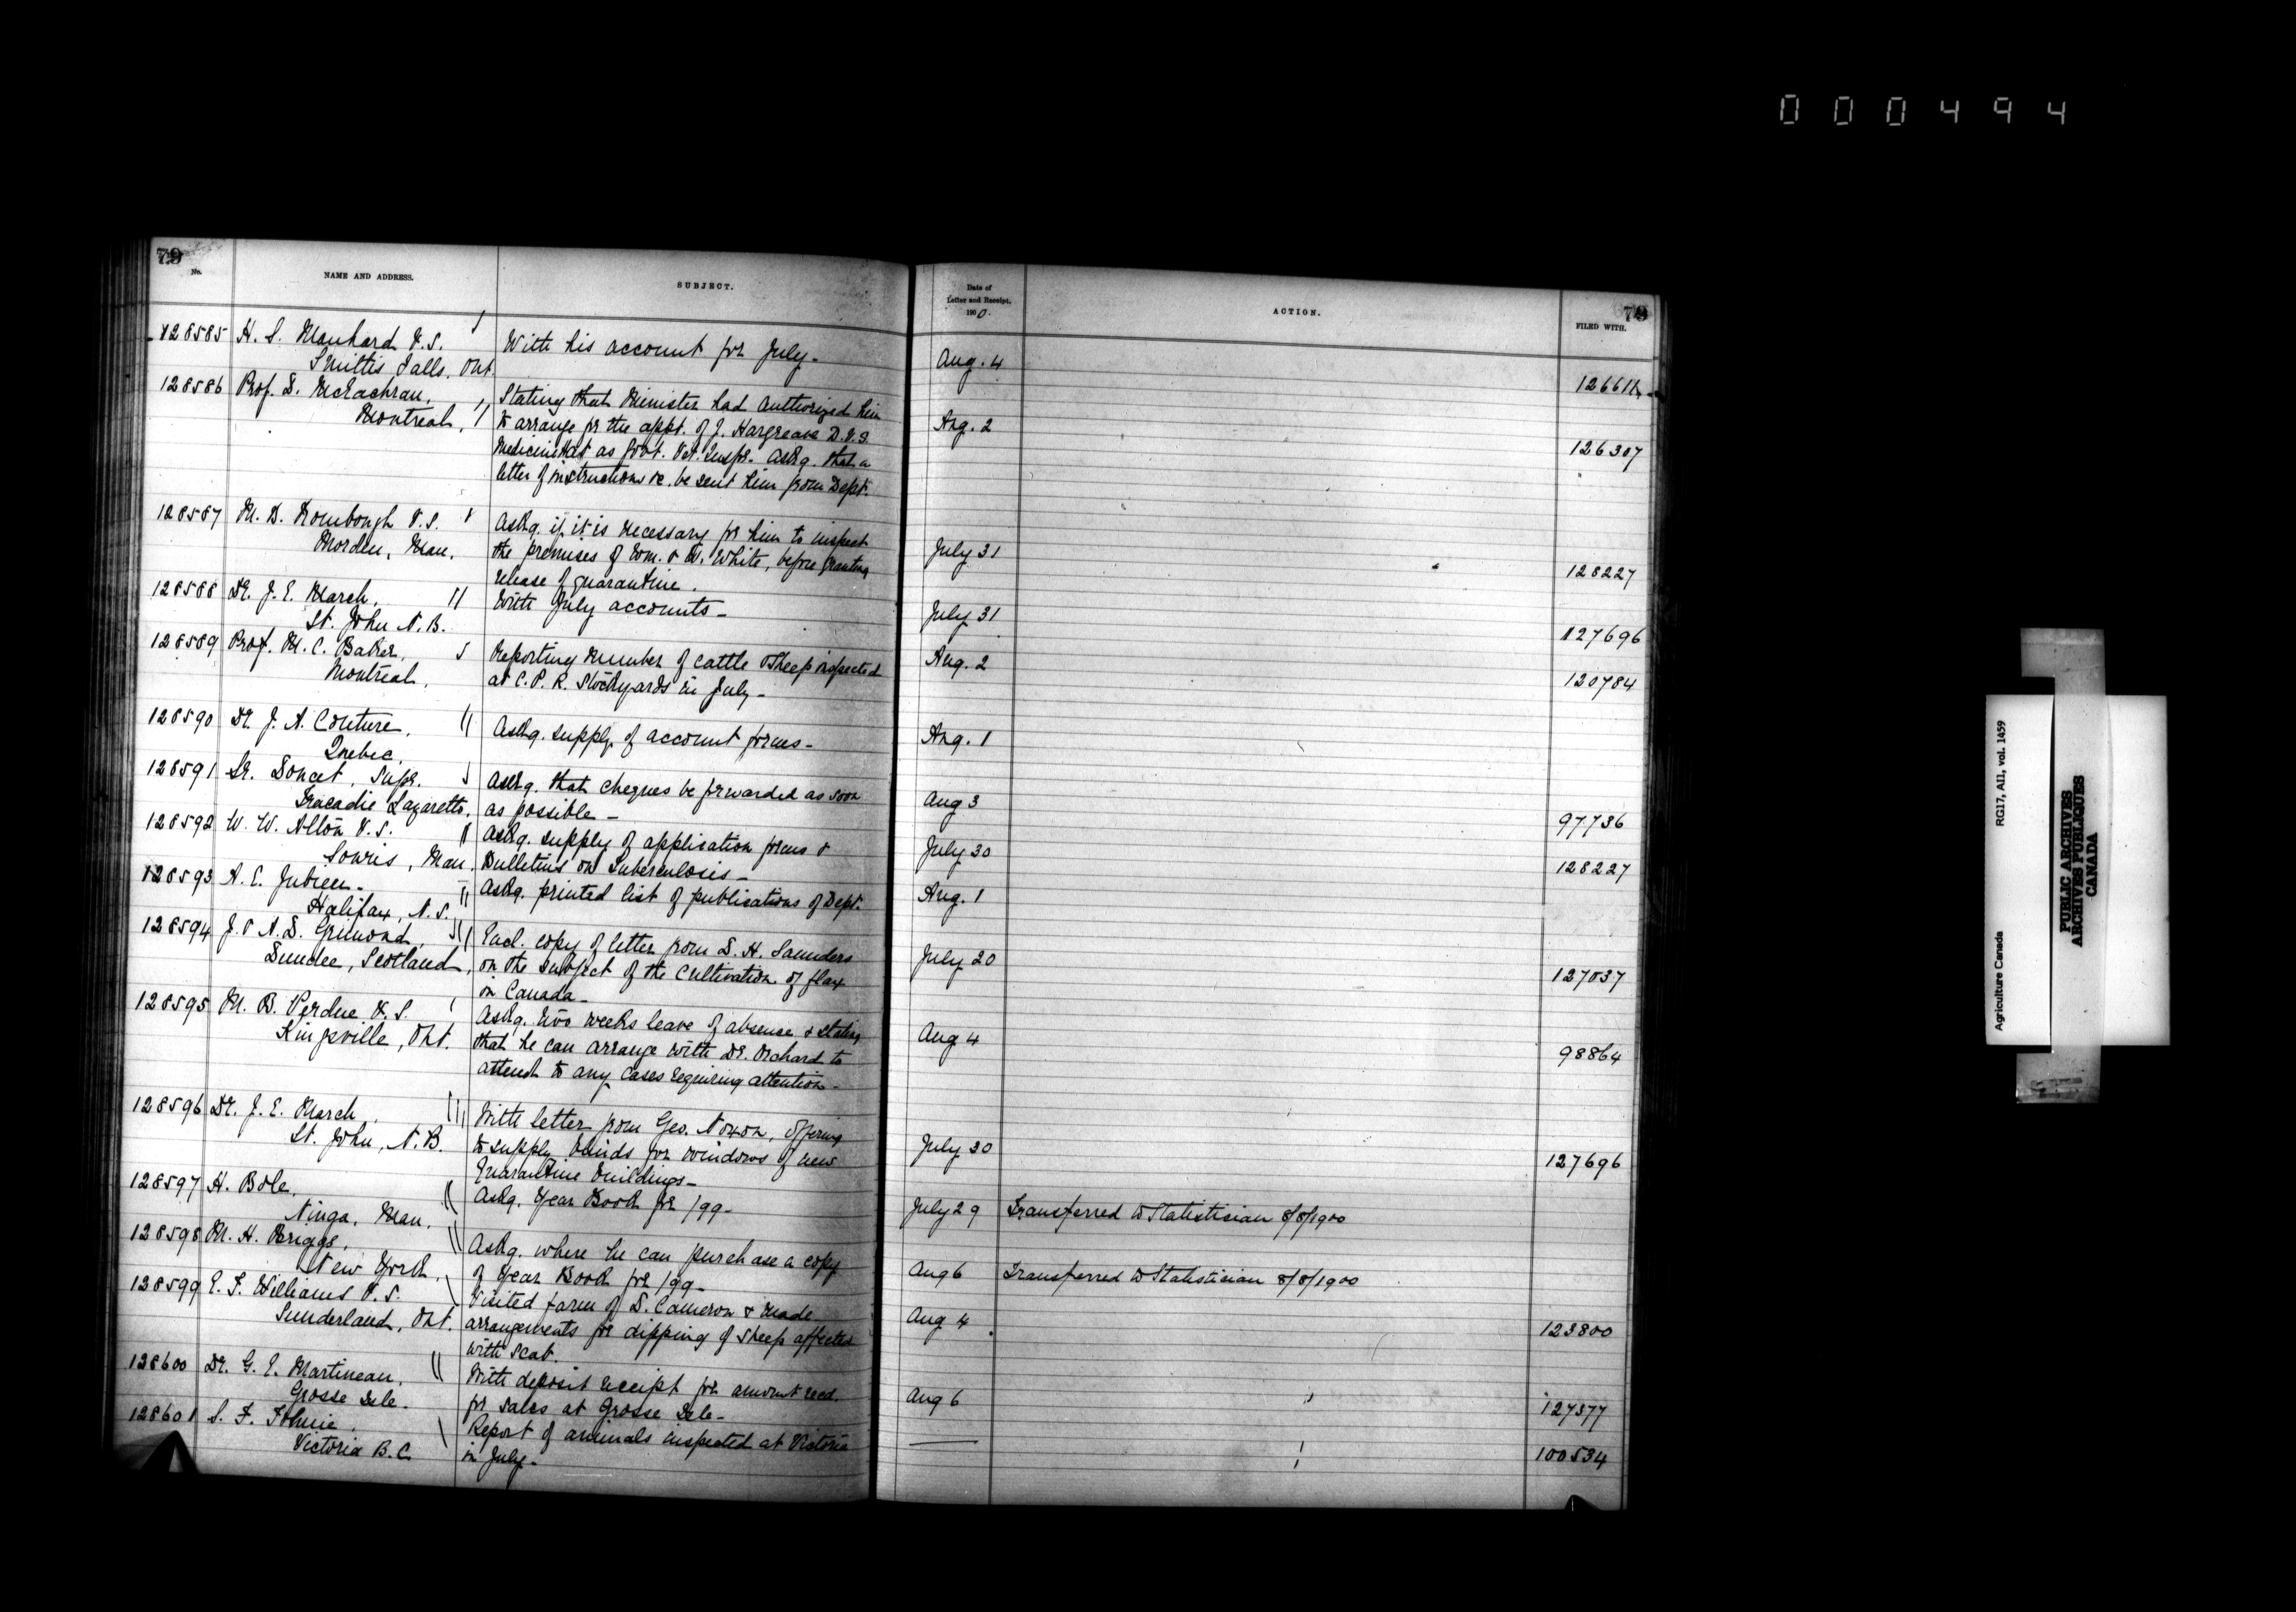 000494
79
No.
NAME AND ADDRESS.
SUBJECT.
128585 H. S. Manhard V.S.
Smiths Falls, Ont.
With his account for July.
128586 Prof. D. McEachran,
Montreal,
Stating that Minister had authorized him
to arrange for the appt. of J. Hargreave D.V.S.
Medicine Hat as Govt. Vet. Inspr. Askg. that a
letter of instructions &c. be sent him from Dept.
128587 M. D. Rombough V.S.
Morden, Man.
Askg. if it is necessary for him to inspect
the premises of Wm. & W. White, before granting
release of quarantine.
128588 Dr. J. E. March,
St. John N.B.
With July accounts-
128589 Prof. M. C. Baker,
Montreal,
Reporting number of cattle & sheep inspected
at C.P.R. Stockyards in July-
128590 Dr. J. A. Couture,
Quebec,
Askg. supply of account forms-
128591 Dr. Doucet, Supr.
Tracadie Lazaretto,
Askg. that cheques be forwarded as soon
as possible-
128592 W. W. Alton V.S.
Souris, Man.
Askg. supply of application forms &
Bulletins on Tuberculosis-
128593 A. E. Jubien-
Halifax, N.S.
Askg. printed list of publications of Dept.
128594 J. & A. D. Grimond,
Dundee, Scotland,
Encl. copy of letter from D. H. Saunders
on the subject of the cultivation of flax
in Canada-
128595 M. B. Perdue V.S.
Kingsville, Ont.
Askg. two weeks leave of absence & stating
that he can arrange with Dr. Orchard to
attend to any cases requiring attention-
128596 Dr. J. E. March,
St. John, N.B.
With letter from Geo. Noxon, offering
to supply blinds for windows of new
Quarantine buildings-
128597 H. Bole,
Ninga, Man.
Askg. Year Book for /99-
128598 M. H. Briggs,
New York,
Askg. where he can purchase a copy
of Year Book for /99-
128599 E. F. Williams V.S.
Sunderland, Ont.
Visited farm of D. Cameron & made
arrangements for dipping of sheep affected
with scab.
128600 Dr. G. E. Martineau,
Grosse Isle.
With deposit receipt for amount recd.
for sales at Grosse Isle-
128601 S. F. Tolmie,
Victoria B.C.
Report of animals inspected at Victoria
in July-
Date of
Letter and Receipt.
1900.
ACTION.
FILED WITH.
79
Aug. 4
Aug. 2 126307
July 31 128227
July 31 127696
Aug. 2 120784
Aug. 1
Aug 3 97736
July 30 128227
Aug. 1
July 20 127037
Aug 4 98864
July 30 127696
July 29 Transferred to Statistician 8/8/1900
Aug 6 Transferred to Statistician 8/8/1900
Aug 4 123800
Aug 6 127377
100534
Agriculture Canada
RG17, AII, vol. 1459
PUBLIC ARCHIVES
ARCHIVES PUBLIQUES
CANADA